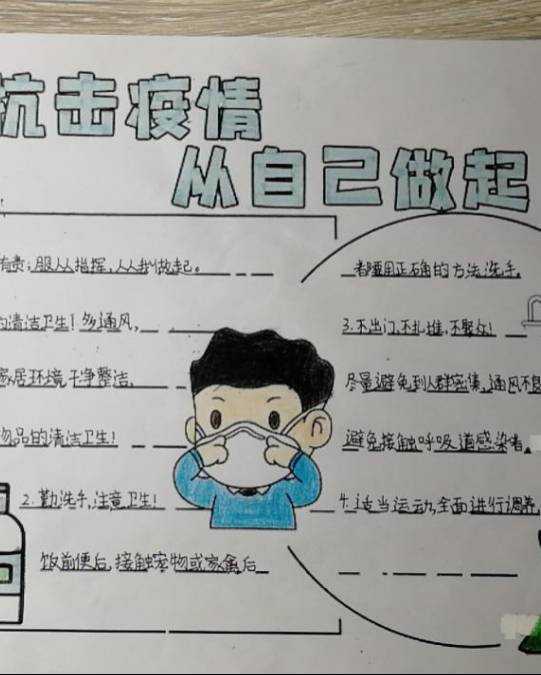 抗击疫情
从自己做起
有责;服从指挥,从我做起。
的清洁卫生!多通风,
家居环境干净整洁,
物品的清洁卫生!
2.勤洗手,注意卫生!
饭前便后,接触宠物或家禽后
都要用正确的方法洗手。
3.不出门,不扎堆,不聚众!
尽量避免到人群密集,通风不
避免接触呼吸道感染者。
4.适当运动,全面进行调养,